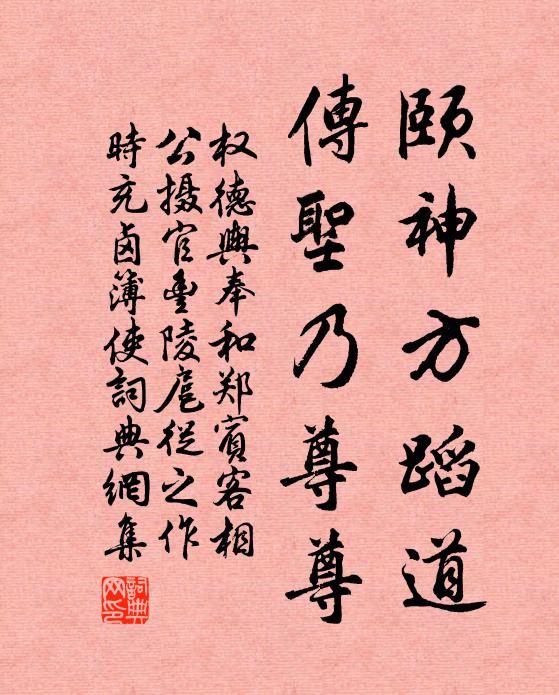 頤神方蹈道
傳聖乃尊尊
权德輿奉和郑賓客相
公摄官豊陵扈從之作
時充鹵簿使詞典網集
詞典网印